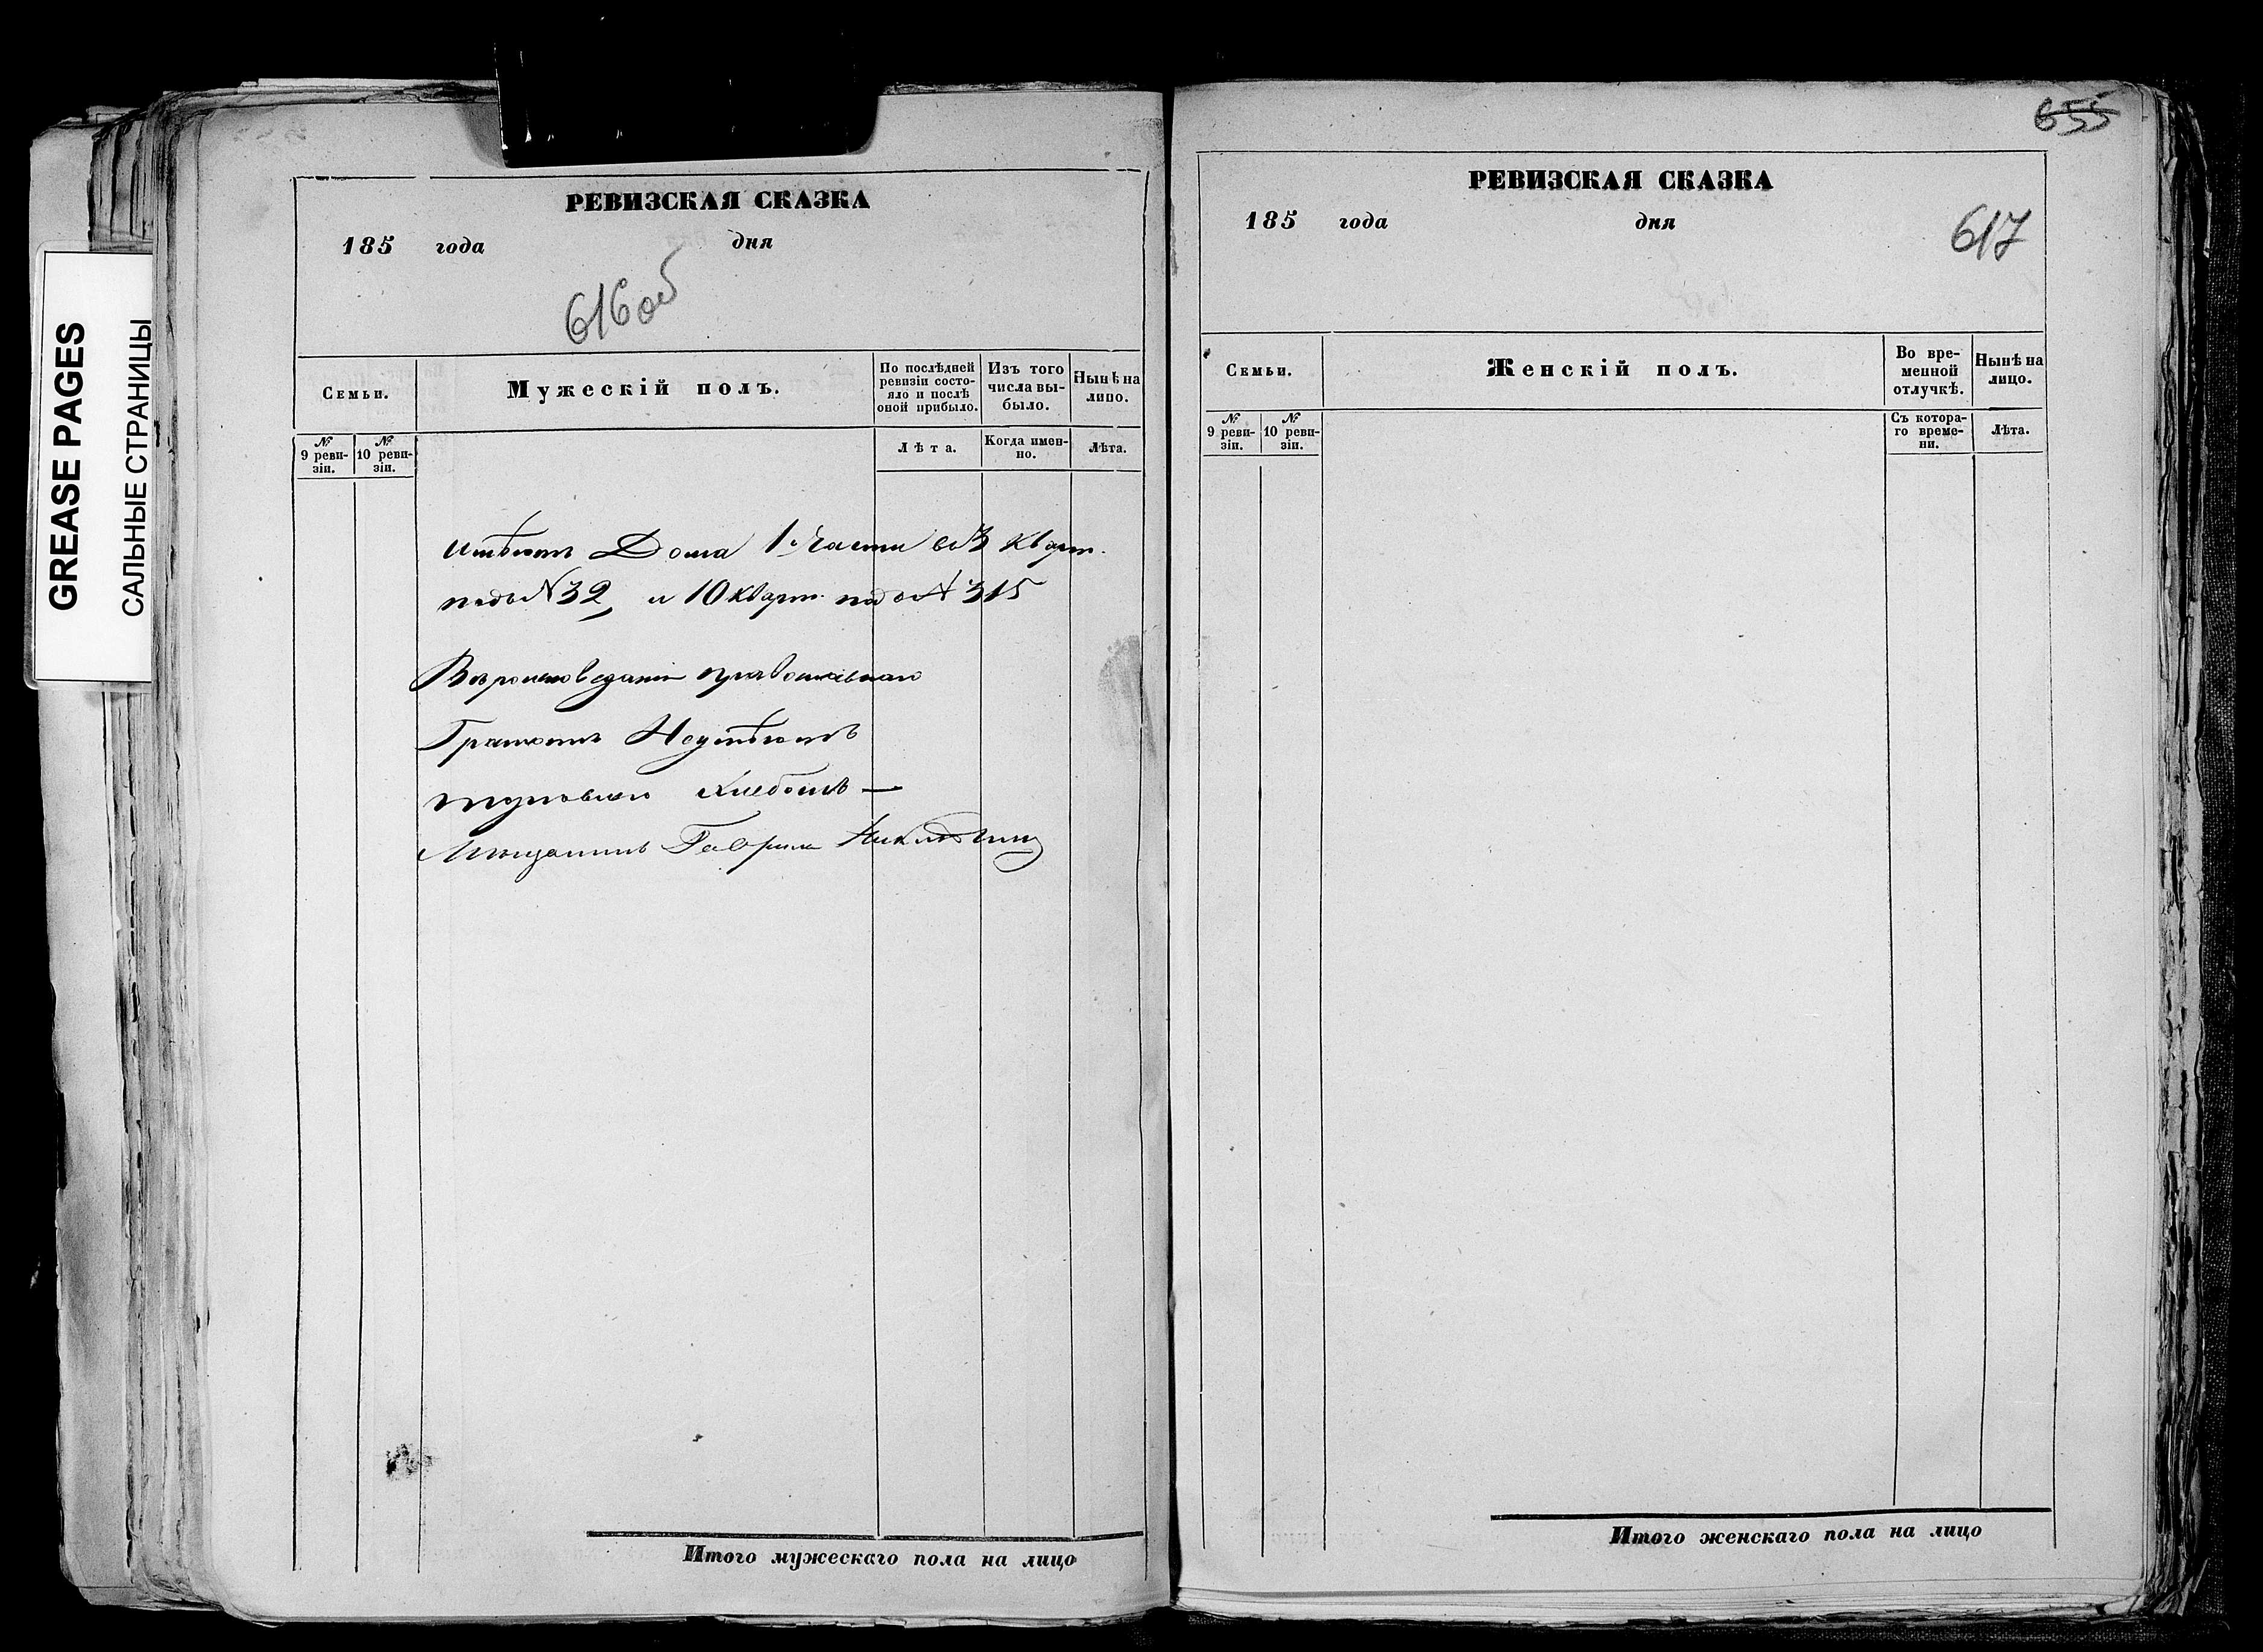 GREASE PAGES
САЛЬНЫЕ СТРАНИЦЫ
РЕВИЗСКАЯ СКАЗКА
185 года дня
616 об
Семьи.
Мужескій полъ.
По послѣдней ревизіи состояло и послѣ оной прибыло.
Изъ того числа выбыло.
Нынѣ на лицо.
№ 9 ревизіи.
№ 10 ревизіи.
Лѣта.
Когда именно.
Лѣта.
имѣетъ Дома 1 Части въ 3 Кварт.
подъ № 32, и 10 кварт. подъ № 315
Вѣроисповеданія православнаго
Грамотѣ Неумѣетъ
торговлею хлебомъ —
Мѣщанинъ Гаврила
Итого мужескаго пола на лицо
655
РЕВИЗСКАЯ СКАЗКА
185 года дня
617
Семьи.
Женскій полъ.
Во временной отлучкѣ.
Нынѣ на лицо.
№ 9 ревизіи.
№ 10 ревизіи.
Съ котораго времени.
Лѣта.
Итого женскаго пола на лицо